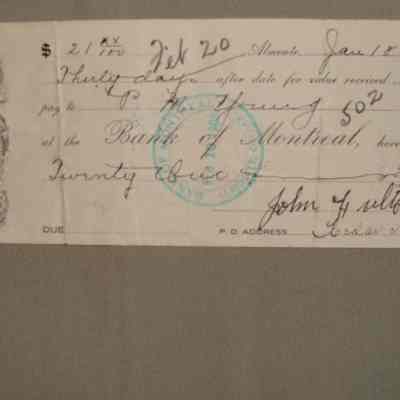 $ 21 xx/100 Feb 20 Almonte, Jan 18
Thirty days after date for value received
pay to P. M. Young 502
at the Bank of Montreal, here
Twenty One
John Fult
DUE P. O. ADDRESS